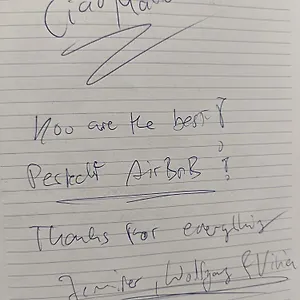 Ciao
You are the best!
Perfect AirBnB!
Thanks for everything
Jennifer, Wolfgang &